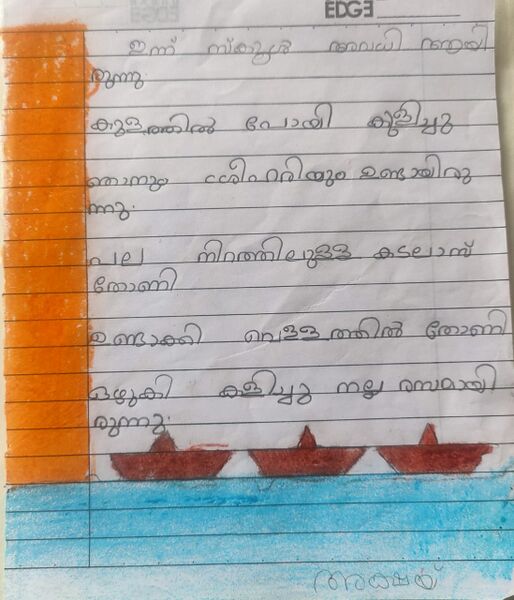 EDGE
ഇന്ന് സ്കൂൾ അവധി ആയി
രുന്നു.
കുളത്തിൽ പോയി കുളിച്ചു
ഞാനും ശ്രീഹരിയും ഉണ്ടായിരു
ന്നു.
പല നിറത്തിലുള്ള കടലാസ്
തോണി
ഉണ്ടാക്കി വെള്ളത്തിൽ തോണി
ഒഴുകി കളിച്ചു നല്ല രസമായി
രുന്നു.